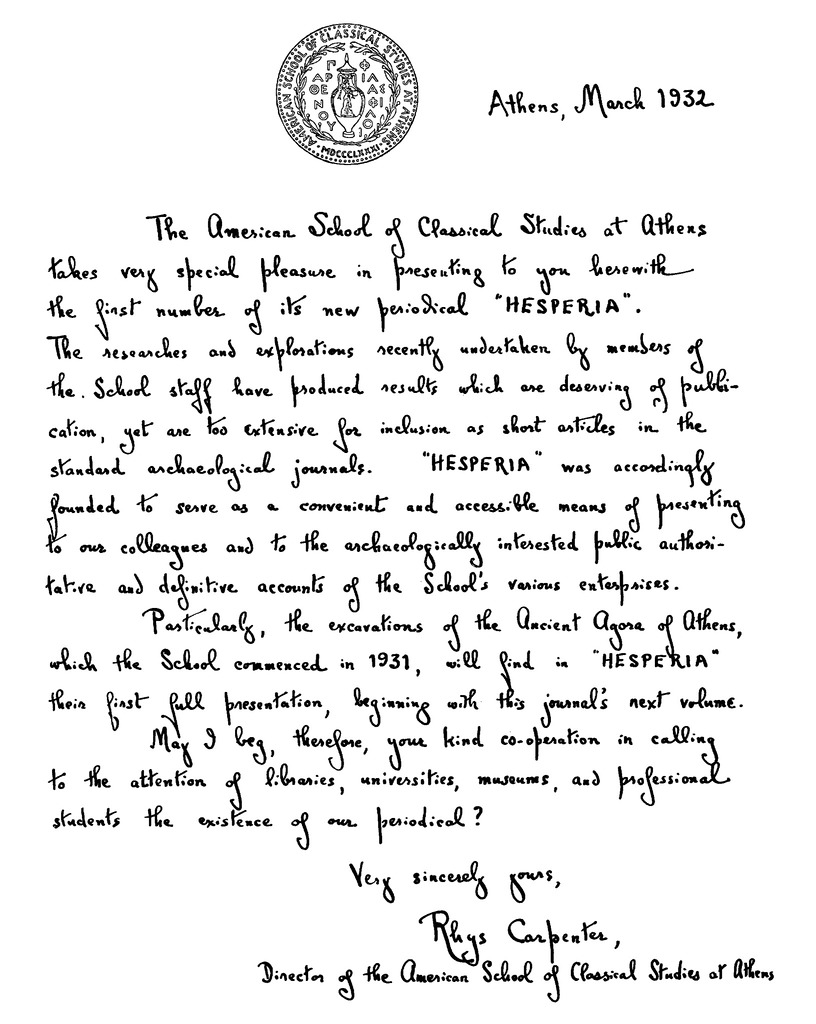 AMERICAN SCHOOL OF CLASSICAL STUDIES AT ATHENS
· MDCCCLXXXI ·
ΠΑΡΘΕΝΟΥ ΦΙΛΑΣ ΦΙΛΟΙ
Athens, March 1932
The American School of Classical Studies at Athens
takes very special pleasure in presenting to you herewith
the first number of its new periodical "HESPERIA".
The researches and explorations recently undertaken by members of
the School staff have produced results which are deserving of publi-
cation, yet are too extensive for inclusion as short articles in the
standard archaeological journals. "HESPERIA" was accordingly
founded to serve as a convenient and accessible means of presenting
to our colleagues and to the archaeologically interested public authori-
tative and definitive accounts of the School's various enterprises.
Particularly, the excavations of the Ancient Agora of Athens,
which the School commenced in 1931, will find in "HESPERIA"
their first full presentation, beginning with this journal's next volume.
May I beg, therefore, your kind co-operation in calling
to the attention of libraries, universities, museums, and professional
students the existence of our periodical?
Very sincerely yours,
Rhys Carpenter,
Director of the American School of Classical Studies at Athens